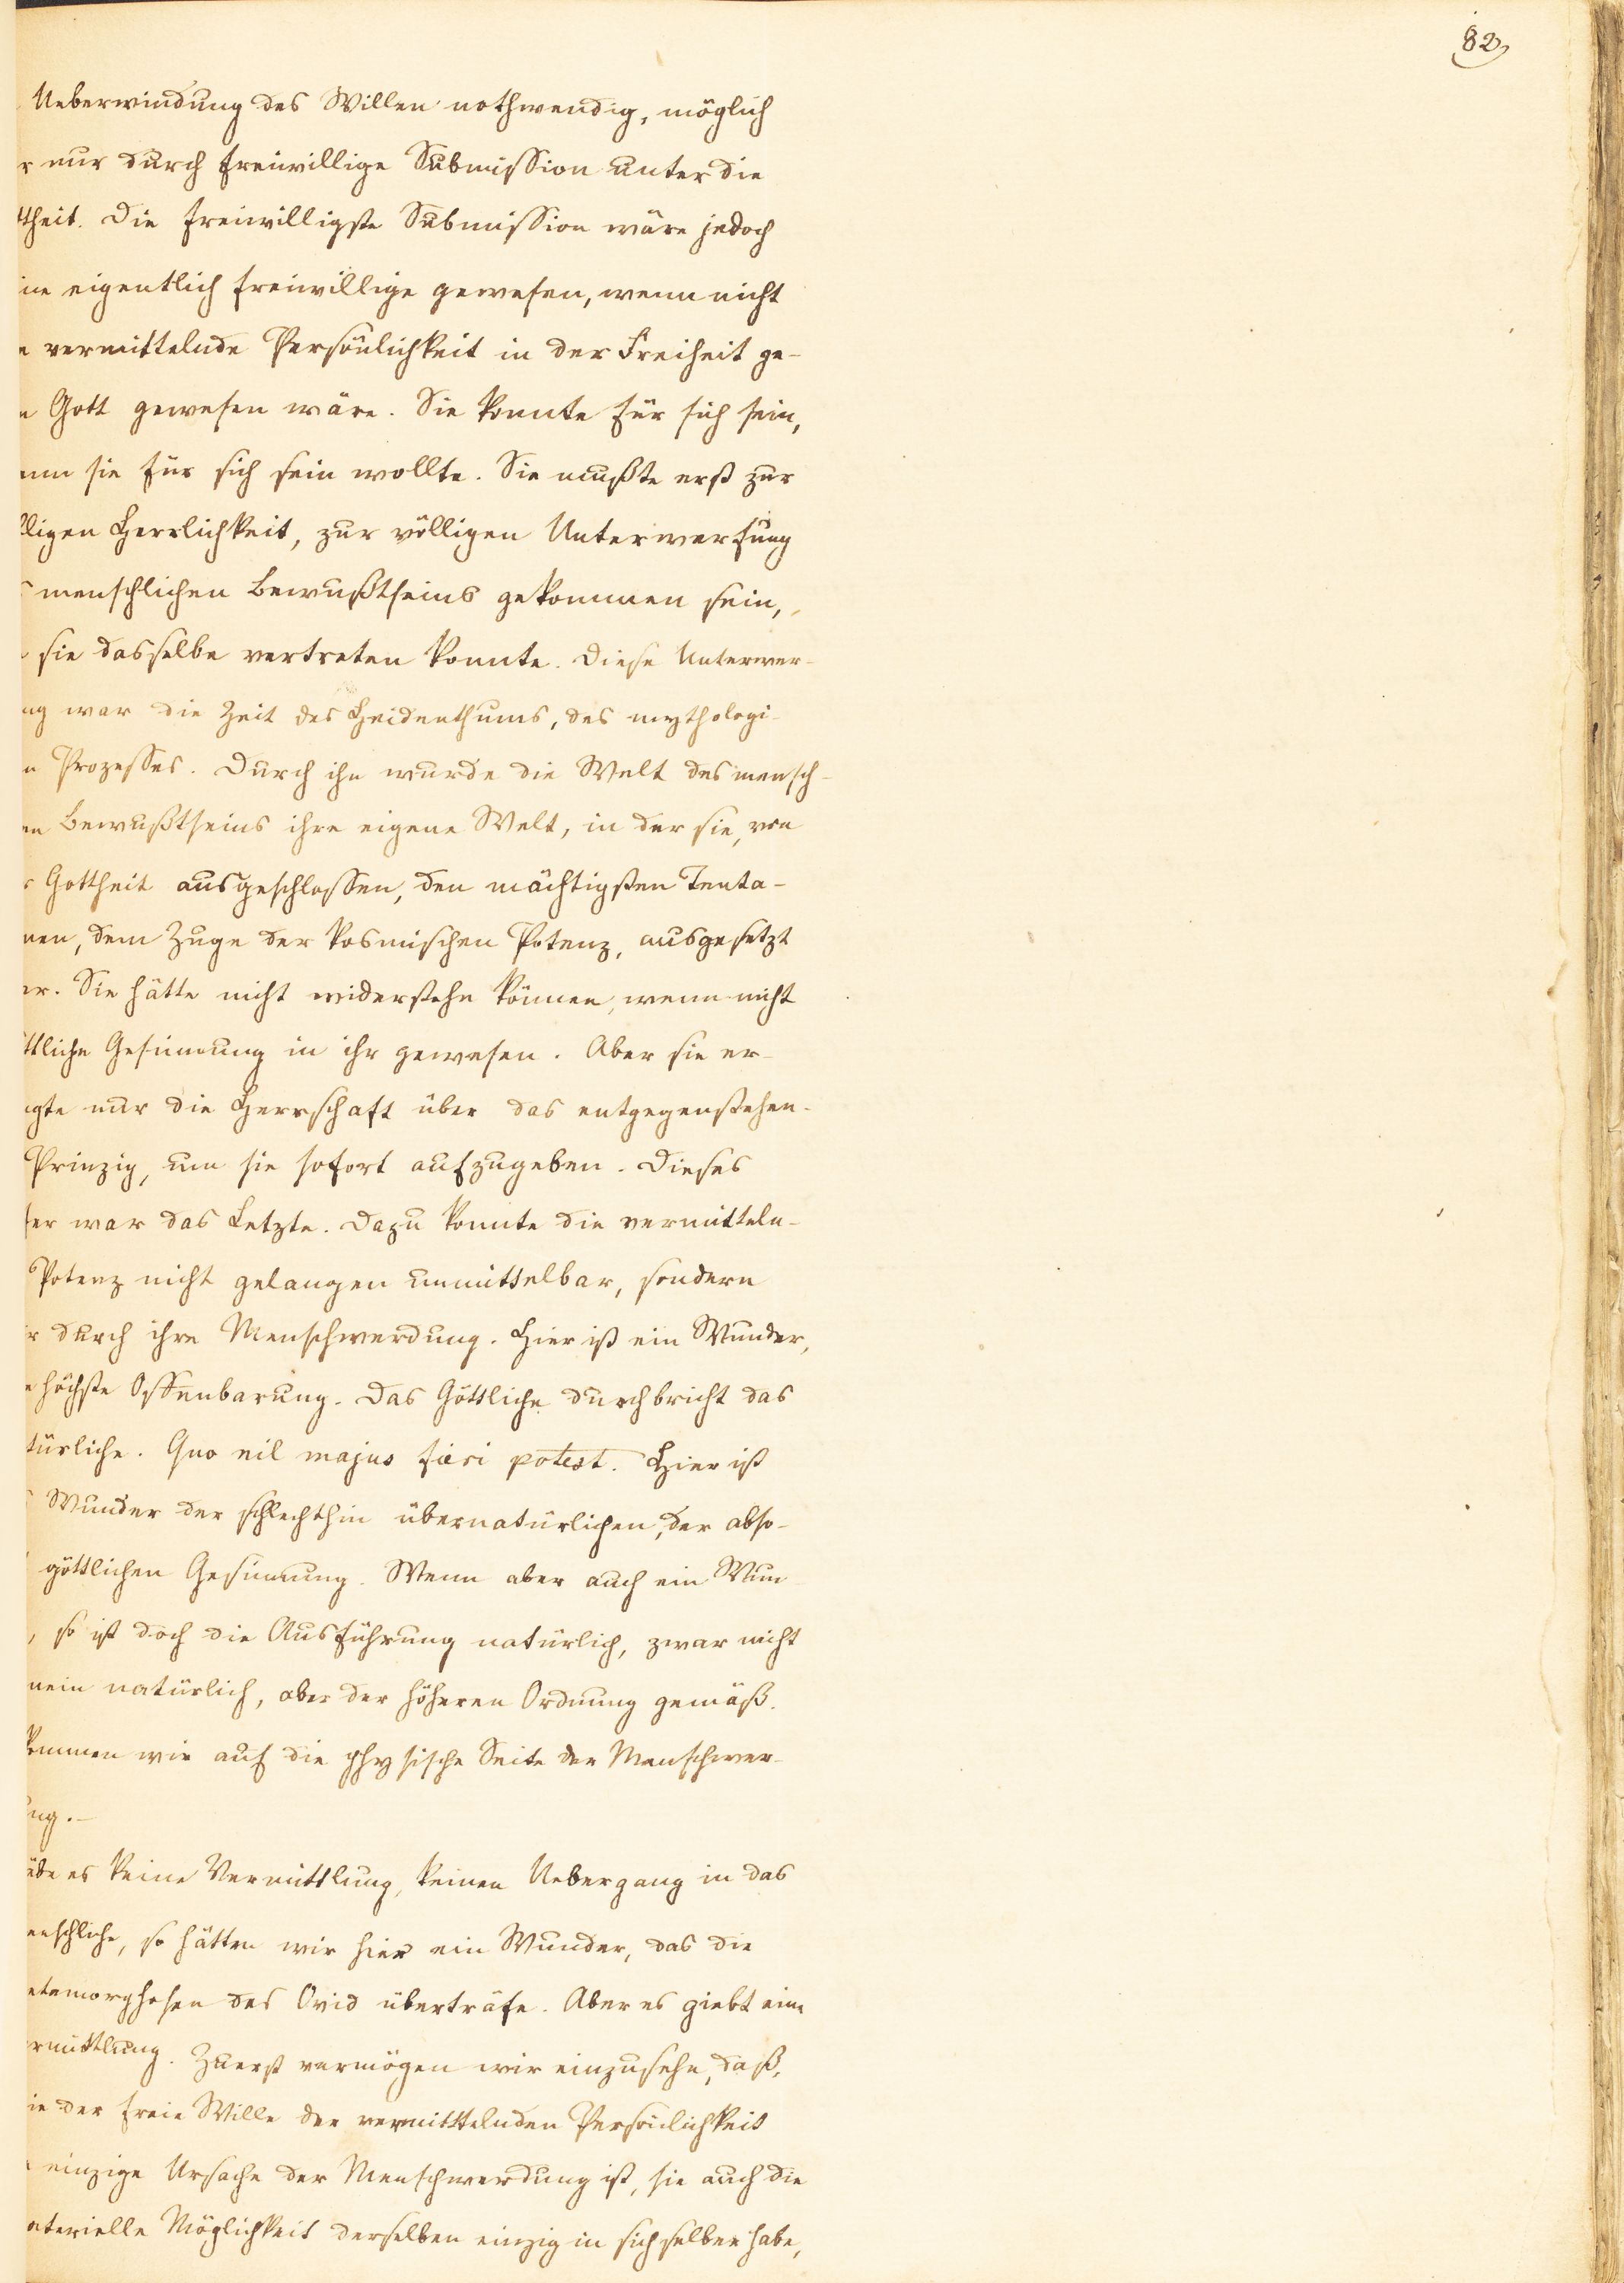 82
Ueberwindung des Willen nothwendig, möglich
r nur durch freiwillige Submission unter die
ttheit. Die freiwilligste Submission wäre jedoch
ine eigentlich freiwillige gewesen, wenn nicht
e vermittelnde Persönlichkeit in der Freiheit ge-
n Gott gewesen wäre. Sie konnte für sich sein,
nn sie für sich sein wollte. Sie mußte erst zur
lligen Herrlichkeit, zur völligen Unterwerfung
s menschlichen Bewußtseins gekommen sein,
sie dasselbe vertreten konnte. Diese Unterwer-
ng war die Zeit des Heidenthums, des mythologi-
n Prozesses. Durch ihn wurde die Welt des mensch-
en Bewußtseins ihre eigene Welt, in der sie, von
r Gottheit ausgeschlossen, den mächtigsten Tenta-
nen, dem Zuge der kosmischen Potenz, ausgesetzt
ar. Sie hätte nicht widerstehn können, wenn nicht
ttliche Gesinnung in ihr gewesen. Aber sie er-
ngte nur die Herrschaft über das entgegenstehen-
Prinzip, um sie sofort aufzugeben. Dieses
fer war das Letzte. Dazu konnte die vermitteln-
Potenz nicht gelangen unmittelbar, sondern
r durch ihre Menschwerdung. Hier ist ein Wunder,
e höchste Offenbarung. Das Göttliche durchbricht das
türliche. Quo nil majus fieri potest. Hier ist
s Wunder der schlechthin übernatürlichen, der abso-
göttlichen Gesinnung. Wenn aber auch ein Wun-
, so ist doch die Ausführung natürlich, zwar nicht
mein natürlich, aber der höheren Ordnung gemäß.
kommen wir auf die physische Seite der Menschwer-
ung.—
äbe es keine Vermittlung, keinen Uebergang in das
enschliche, so hätten wir hier ein Wunder, das die
etamorphosen des Ovid überträfe. Aber es giebt eine
rmittlung. Zuerst vermögen wir einzusehn, daß,
ie der freie Wille der vermittelnden Persönlichkeit
einzige Ursache der Menschwerdung ist, sie auch die
aterielle Möglichkeit derselben einzig in sich selber habe,